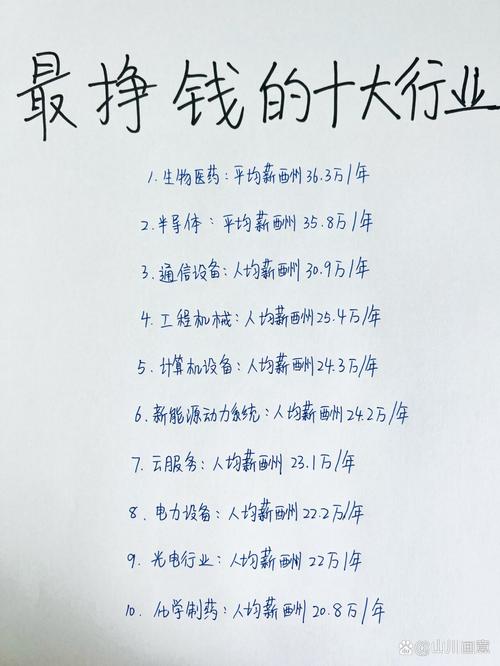 最挣钱的十大行业
1.生物医药：平均薪酬36.3万/年
2.半导体：平均薪酬35.8万/年
3.通信设备：人均薪酬30.9万/年
4.工程机械：人均薪酬25.4万/年
5.计算机设备：人均薪酬24.3万/年
6.新能源动力系统：人均薪酬24.2万/年
7.云服务：人均薪酬23.1万/年
8.电力设备：人均薪酬22.2万/年
9.光电行业：人均薪酬22万/年
10.化学制药：人均薪酬20.8万/年
@山川画意